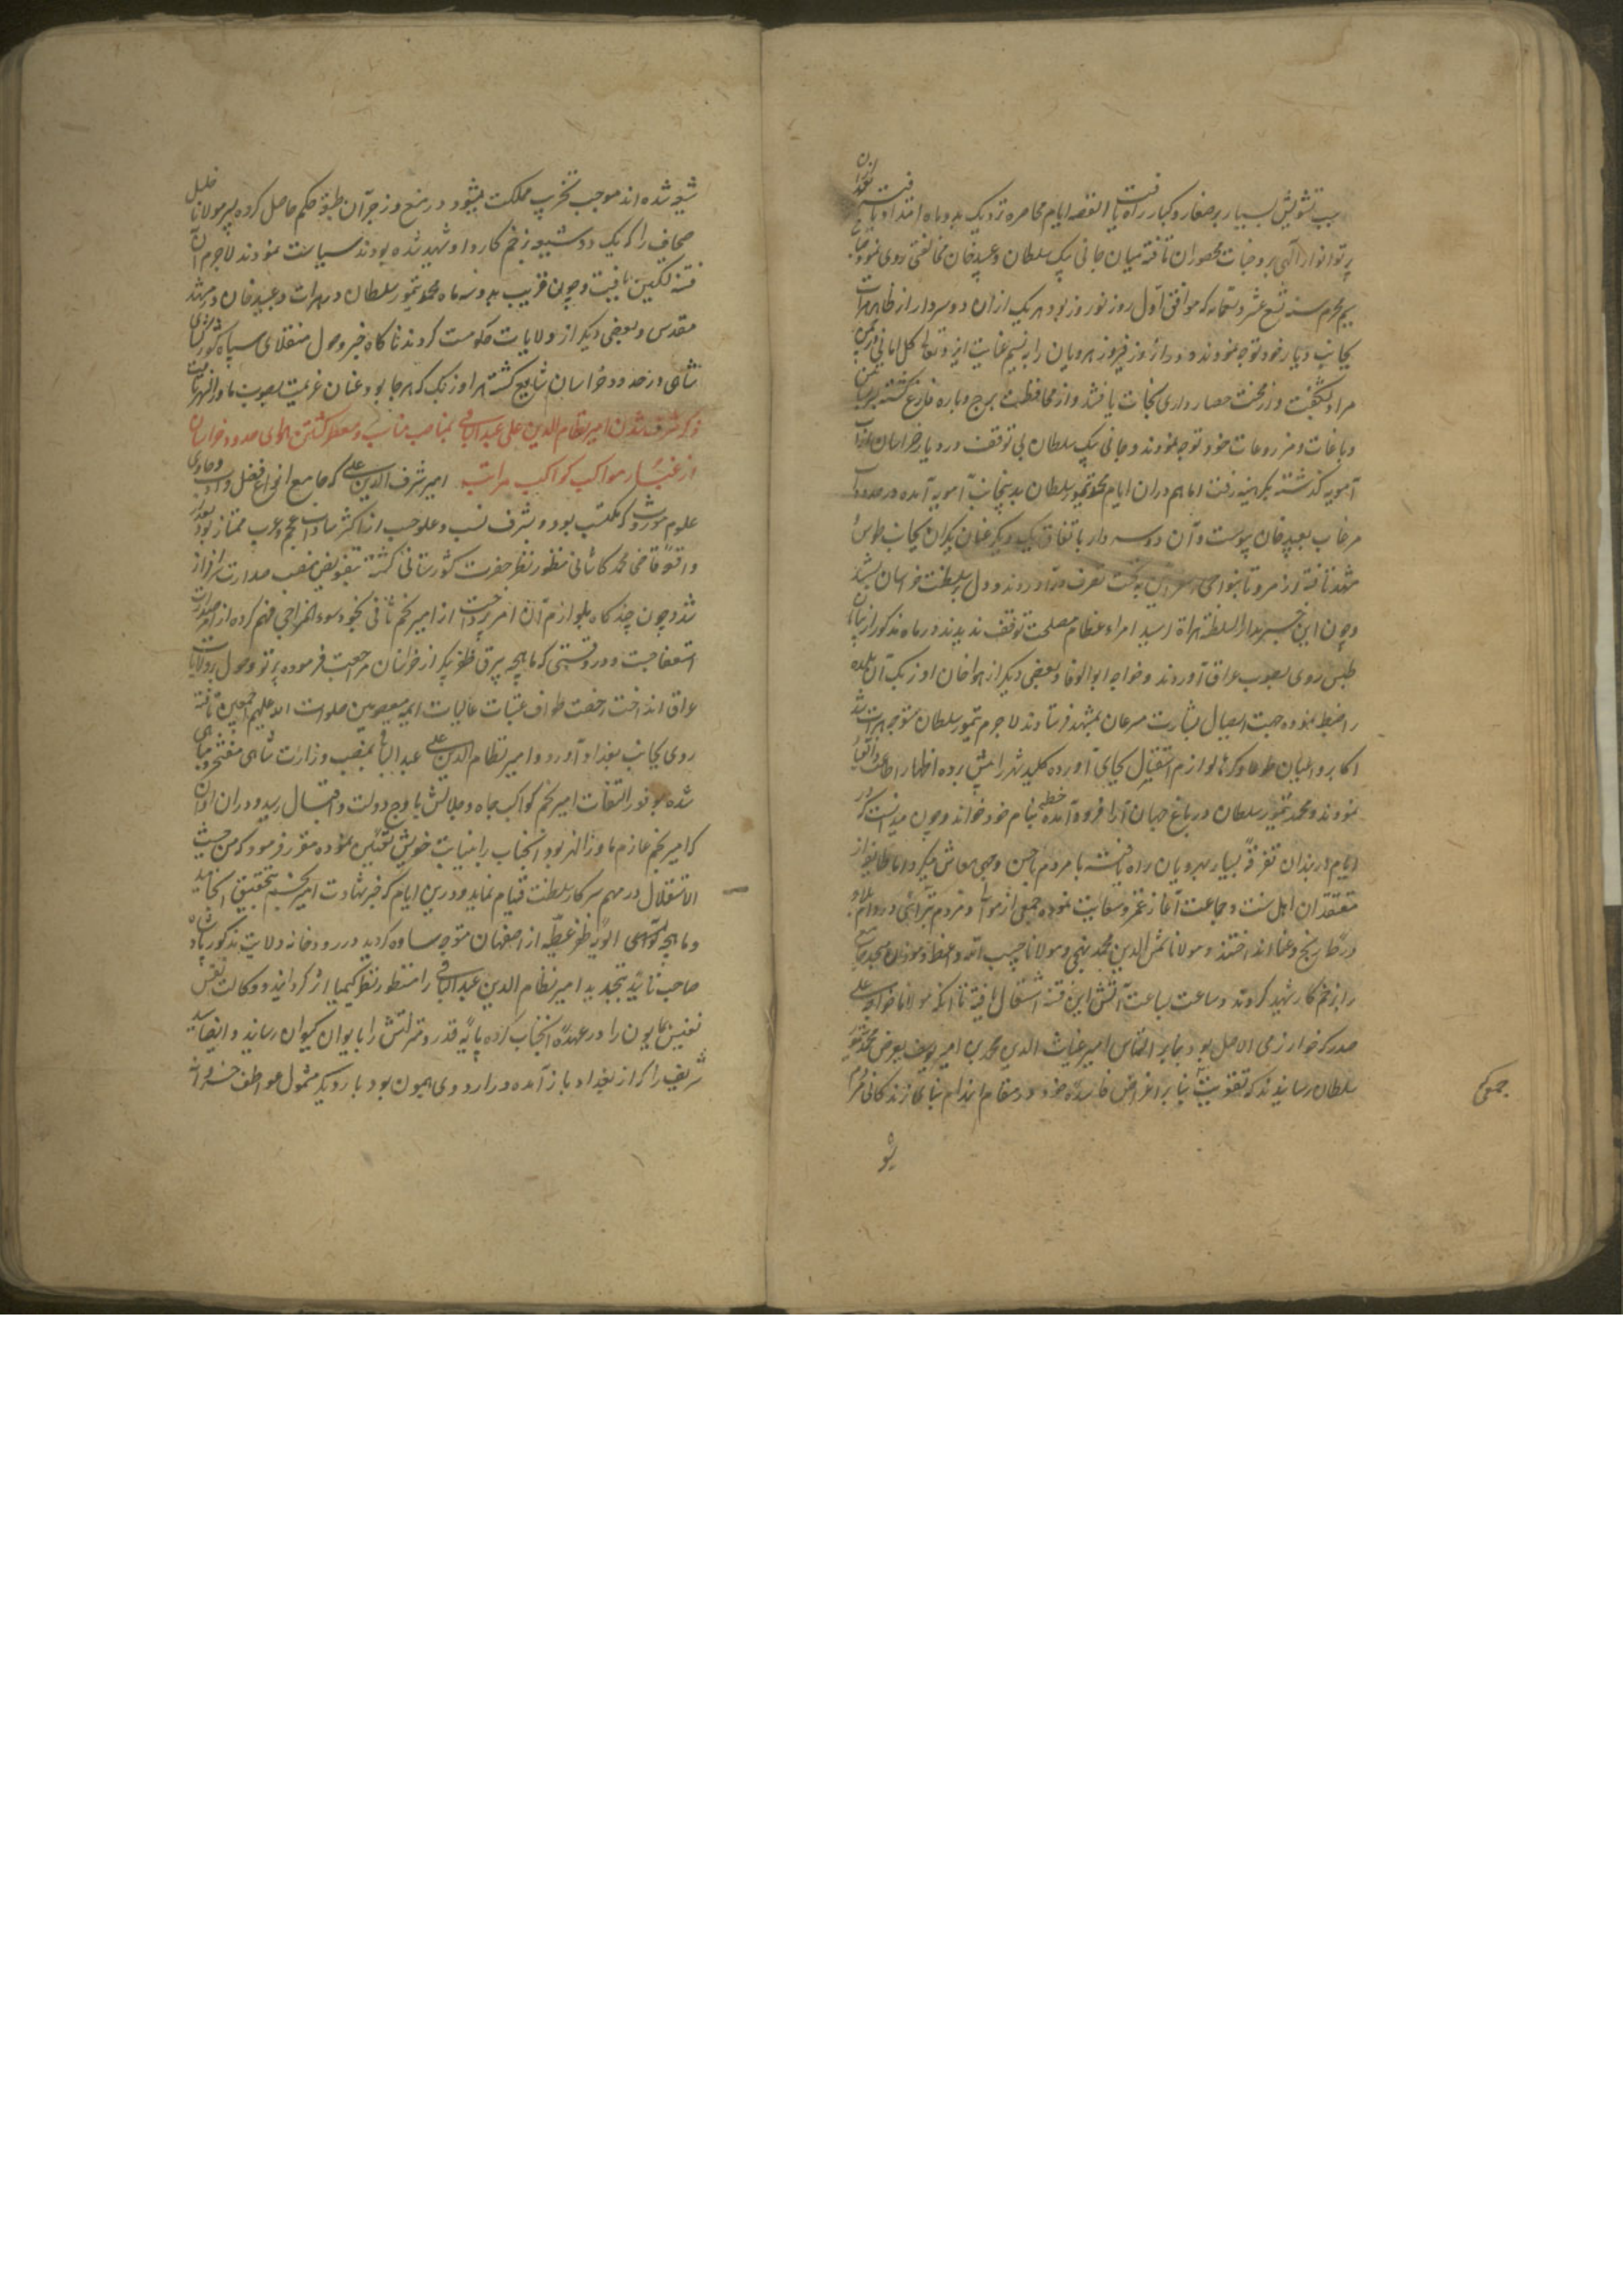 سبب تشویش بسیار بر صغار و کبار راه یافت القصه ایام محاصره نزدیک بدو ماه امتداد یافت
پرتو انوار الهی بر وجنات محصوران تافته میان جانی بیک سلطان و عبید خان مخالفتی روی نمود
محرم سنه تسع عشر و تسعمایه که موافق اول روز نوروز بود هر یک ازان دو سردار از ظاهر هرات
بجانب دیار خود توجه نمودند و دران روز فیروز هرویان را به نسیم عنایت ایزد تعالی کل امانی
مراد بشکفت و از محنت حصارداری نجات یافتند و از محافظت برج و باره فارغ گشته
و باغات و مزروعات خود توجه نمودند و جانی بیک سلطان بی توقف در دیار خراسان از آب
آمویه گذشته بکرمینه رفت اما هم دران ایام محمد تیمور سلطان بدینجانب آمویه آمده در حدود
مرغاب بعبید خان پیوست و آن دو سردار باتفاق یکدیگر عنان یکران بجانب طوس
مشهد تافته از مرو تا بنواحی بتحت تصرف درآوردند و دل بر سلطنت خراسان
و چون این خبر بدار السلطنه هراة رسید امراء عظام مصلحت توقف ندیدند در ماه مذکور از
طبس روی بصوب عراق آوردند و خواجه ابو الوفا و بعضی دیگر از هواخواهان اوزبک آن بلده
را ضبط نموده جهت ایصال بشارت مسرعان بمشهد فرستادند لاجرم تیمور سلطان متوجه هرات شد
اکابر و اعیان طوعا و کرها لوازم استقبال بجای آورده کلید شهر را پیش برده اظهار اطاعت
نمودند و محمد تیمور سلطان در باغ جهان آرا فرود آمده خطبه بنام خود خواند و چون میدانست که در
ایام دربندان تفرقه بسیار بهرویان راه یافته با مردم باحسن وجهی معاش میکرد اما طایفه از
متعصبان اهل سنت و جماعت آغاز غمز و سعایت نموده جمعی از موالی و مردم تبرائی
در رنج و عنا انداختند و مولانا شمس الدین محمد و مولانا حبیب الله واعظ
را بزخم کارد شهید کردند و ساعت بساعت آتش این فتنه اشتعال یافته تا آنکه مولانا خواجه علی
صدر که خوارزمی الاصل بود بنابر التماس امیر غیاث الدین محمد بن امیر یوسف بعرض محمد تیمور
سلطان رسانیدند که بنا بر اغراض فاسده خود در مقام انهدام بنای زندگانی مردم
جمعی
شو
شیعه شده اند موجب تخریب مملکت میشود در منع و زجر آن طبقه حکم حاصل کرده پسر مولانا خلیل
صحاف را که یک دو شیعه بزخم کارد او شهید شده بودند سیاست نمودند لاجرم آن
فتنه تسکین یافت و چون قریب بدو سه ماه محمد تیمور سلطان در هرات و عبید خان در مشهد
مقدس و بعضی دیگر از ولایات حکومت کردند ناگاه خبر وصول منقلای سپاه
شاهی در حدود خراسان شایع گشته هر اوزبک که هر جا بود عنان عزیمت بصوب ماوراءالنهر تافت
ذکر مشرف شدن امیر نظام الدین علی عبدالباقی بمناصب مناسب و معطر گشتن هوای حدود خراسان
از غبار مواکب کواکب مراتب امیر شرف الدین علی که جامع انواع فضل و ادب و حاوی
علوم موروث و مکتسب بود و بشرف نسب و علو حسب از اکثر سادات عجم و عرب ممتاز بود بعد از
واقعه قاضی محمد کاشانی منظور نظر حضرت کشورستانی گشته بتفویض منصب صدارت سرافراز
شد و چون چند گاه بلوازم آن امر پرداخت از امیر نجم ثانی بخود سوء المزاجی فهم کرده از امر صدارت
استعفا جست و در وقتی که ماهچه بیرق ظفر پیکر از خراسان مراجعت فرموده پرتو وصول بر ولایات
عراق انداخت رخصت طواف عتبات عالیات ایمه معصومین صلوات الله علیهم اجمعین یافته
روی بجانب بغداد آورد و امیر نظام الدین علی عبد الباقی بمنصب وزارت شاهی مفتخر و مباهی
شده بوفور التفات امیر نجم کواکب جاه و جلالش باوج دولت و اقبال رسید و دران اوان
که امیر نجم عازم ماوراءالنهر بود آنجناب را بنیابت خویش تعیین نموده مقرر فرمود که من حیث
الاستقلال در مهم سرکار سلطنت قیام نماید و درین ایام که خبر شهادت امیر نجم بتحقیق انجامید
و ماهچه لوای ظفر عطیه از اصفهان متوجه ساوه گردید در رودخانه ولایت مذکور پادشاه
صاحب تأیید بتجدید امیر نظام الدین عبد الباقی را منظور نظر کیمیا اثر گردانیده وکالت نفس
نفیس همایون را در عهده آنجناب کرده پایه قدر و منزلتش را بایوان کیوان رسانید و ایضا سید
شریف را که از بغداد باز آمده در اردوی همایون بود بار دیگر مشمول عواطف خسروانه